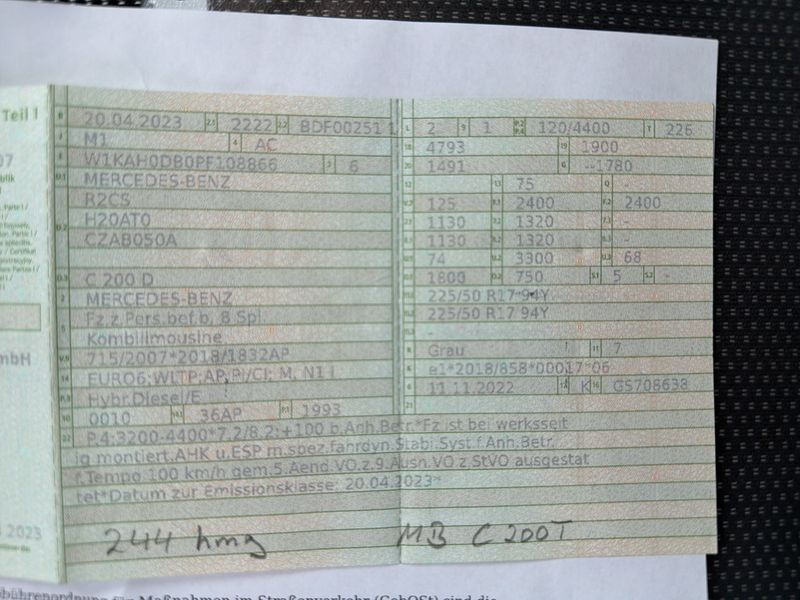 Teil I
B 20.04.2023 2.1 2222 2.2 BDF00251 1 L 2 9 1 P.2 P.4 120/4400 T 226
J M1 4 AC 18 4793 19 1900
E W1KAH0DB0PF108866 3 6 20 1491 G --1780
D.1 MERCEDES-BENZ 12 - 13 75 Q -
R2CS V.7 125 F.1 2400 F.2 2400
D.2 H20AT0 7.1 1130 7.2 1320 7.3 -
CZAB050A 8.1 1130 8.2 1320 8.3 -
U.1 74 U.2 3300 U.3 68
D.3 C 200 D O.1 1800 O.2 750 S.1 5 S.2 -
2 MERCEDES-BENZ 15.1 225/50 R17 94Y
5 Fz.z.Pers.bef.b. 8 Spl. 15.2 225/50 R17 94Y
Kombilimousine 15.3
V.9 715/2007*2018/1832AP R Grau 11 7
14 EURO6;WLTP;AP,PI/CI; M, N1 I K e1*2018/858*00017*06
P.3 Hybr.Diesel/E 6 11.11.2022 17 K 16 GS708638
10 0010 14.1 36AP P.1 1993 21
22 P.4:3200-4400*7.2/8.2:+100 b.Anh.Betr.*Fz ist bei werksseit
ig montiert.AHK u.ESP m.spez.fahrdyn.Stabi.Syst.f.Anh.Betr.
f.Tempo 100 km/h gem.5.Aend.VO.z.9.Ausn.VO z.StVO ausgestat
tet*Datum zur Emissionsklasse: 20.04.2023*
mbH
2023
244 hmg MB C 200T
für Maßnahmen im Straßenverkehr (GebOSt) sind die